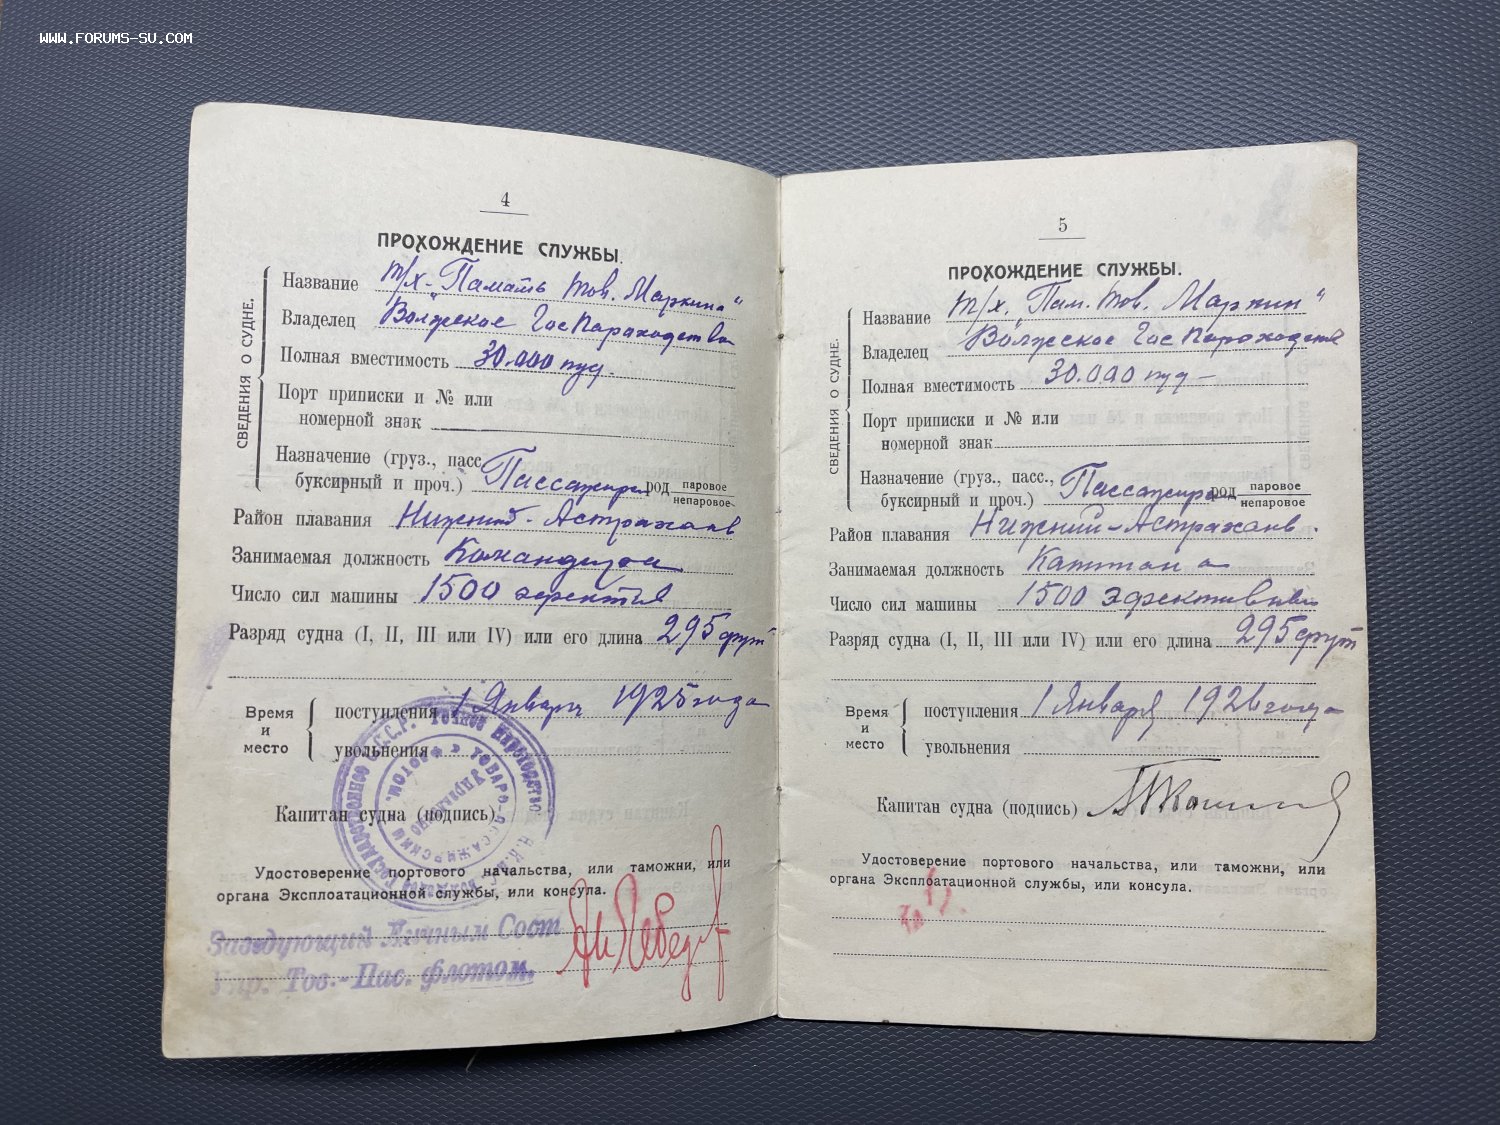 WWW.FORUMS-SU.COM
4
ПРОХОЖДЕНИЕ СЛУЖБЫ.
СВЕДЕНИЯ О СУДНЕ.
Название т/х - "Память тов. Маркина"
Владелец Волжское ГосПароходство
Полная вместимость 30.000 пуд.
Порт приписки и № или
номерной знак
Назначение (груз., пасс.
буксирный и проч.) Пассажир род паровое
непаровое
Район плавания Нижний - Астрахань
Занимаемая должность Командира
Число сил машины 1500 эфектив
Разряд судна (I, II, III или IV) или его длина 295 фут
Время и место
поступления 1 Января 1925 года
увольнения
Капитан судна (подпись)
Удостоверение портового начальства, или таможни, или
органа Эксплоатационной службы, или консула.
Заведующий Личным Сост
Упр. Тов.-Пас. флотом.
5
ПРОХОЖДЕНИЕ СЛУЖБЫ.
СВЕДЕНИЯ О СУДНЕ.
Название т/х. "Пам. тов. Маркин"
Владелец Волжское Гос Пароходств
Полная вместимость 30.000 пуд -
Порт приписки и № или
номерной знак
Назначение (груз., пасс.,
буксирный и проч.) Пассажир род паровое
непаровое
Район плавания Нижний - Астрахань.
Занимаемая должность Капитана
Число сил машины 1500 эфективных
Разряд судна (I, II, III или IV) или его длина 295 фут
Время и место
поступления 1 Января 1926 года
увольнения
Капитан судна (подпись)
Удостоверение портового начальства, или таможни, или
органа Эксплоатационной службы, или консула.